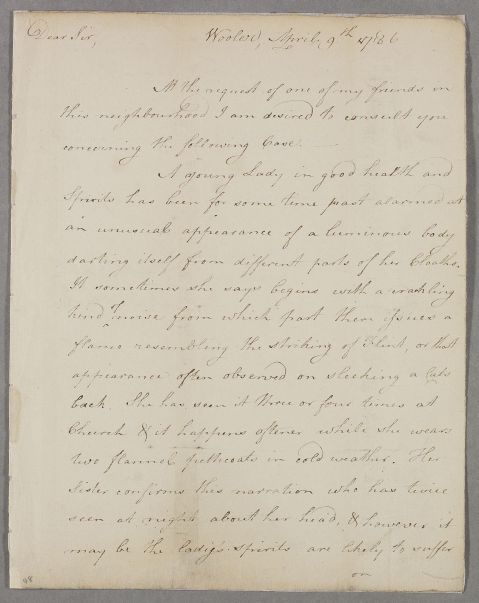 Dear Sir, Wooler, April, 9th 1786
At the request of one of my friends in
this neighbourhood I am desired to consult you
concerning the following Case.
A young Lady in good health and
Spirits has been for some time past alarmed at
an unusual appearance of a luminous body
darting itself from different parts of her Cloaths.
It sometimes she says begins with a crackling
kind of noise from which part then issues a
flame resembling the striking of Flint, or that
appearance often observed on sleeking a Cats
back. She has seen it three or four times at
Church & it happens oftener while she wears
two flannel petticoats in cold weather. Her
Sister confirms this narration who has twice
seen at night about her head, & however it
may be the lady's spirits are likely to suffer
on
98